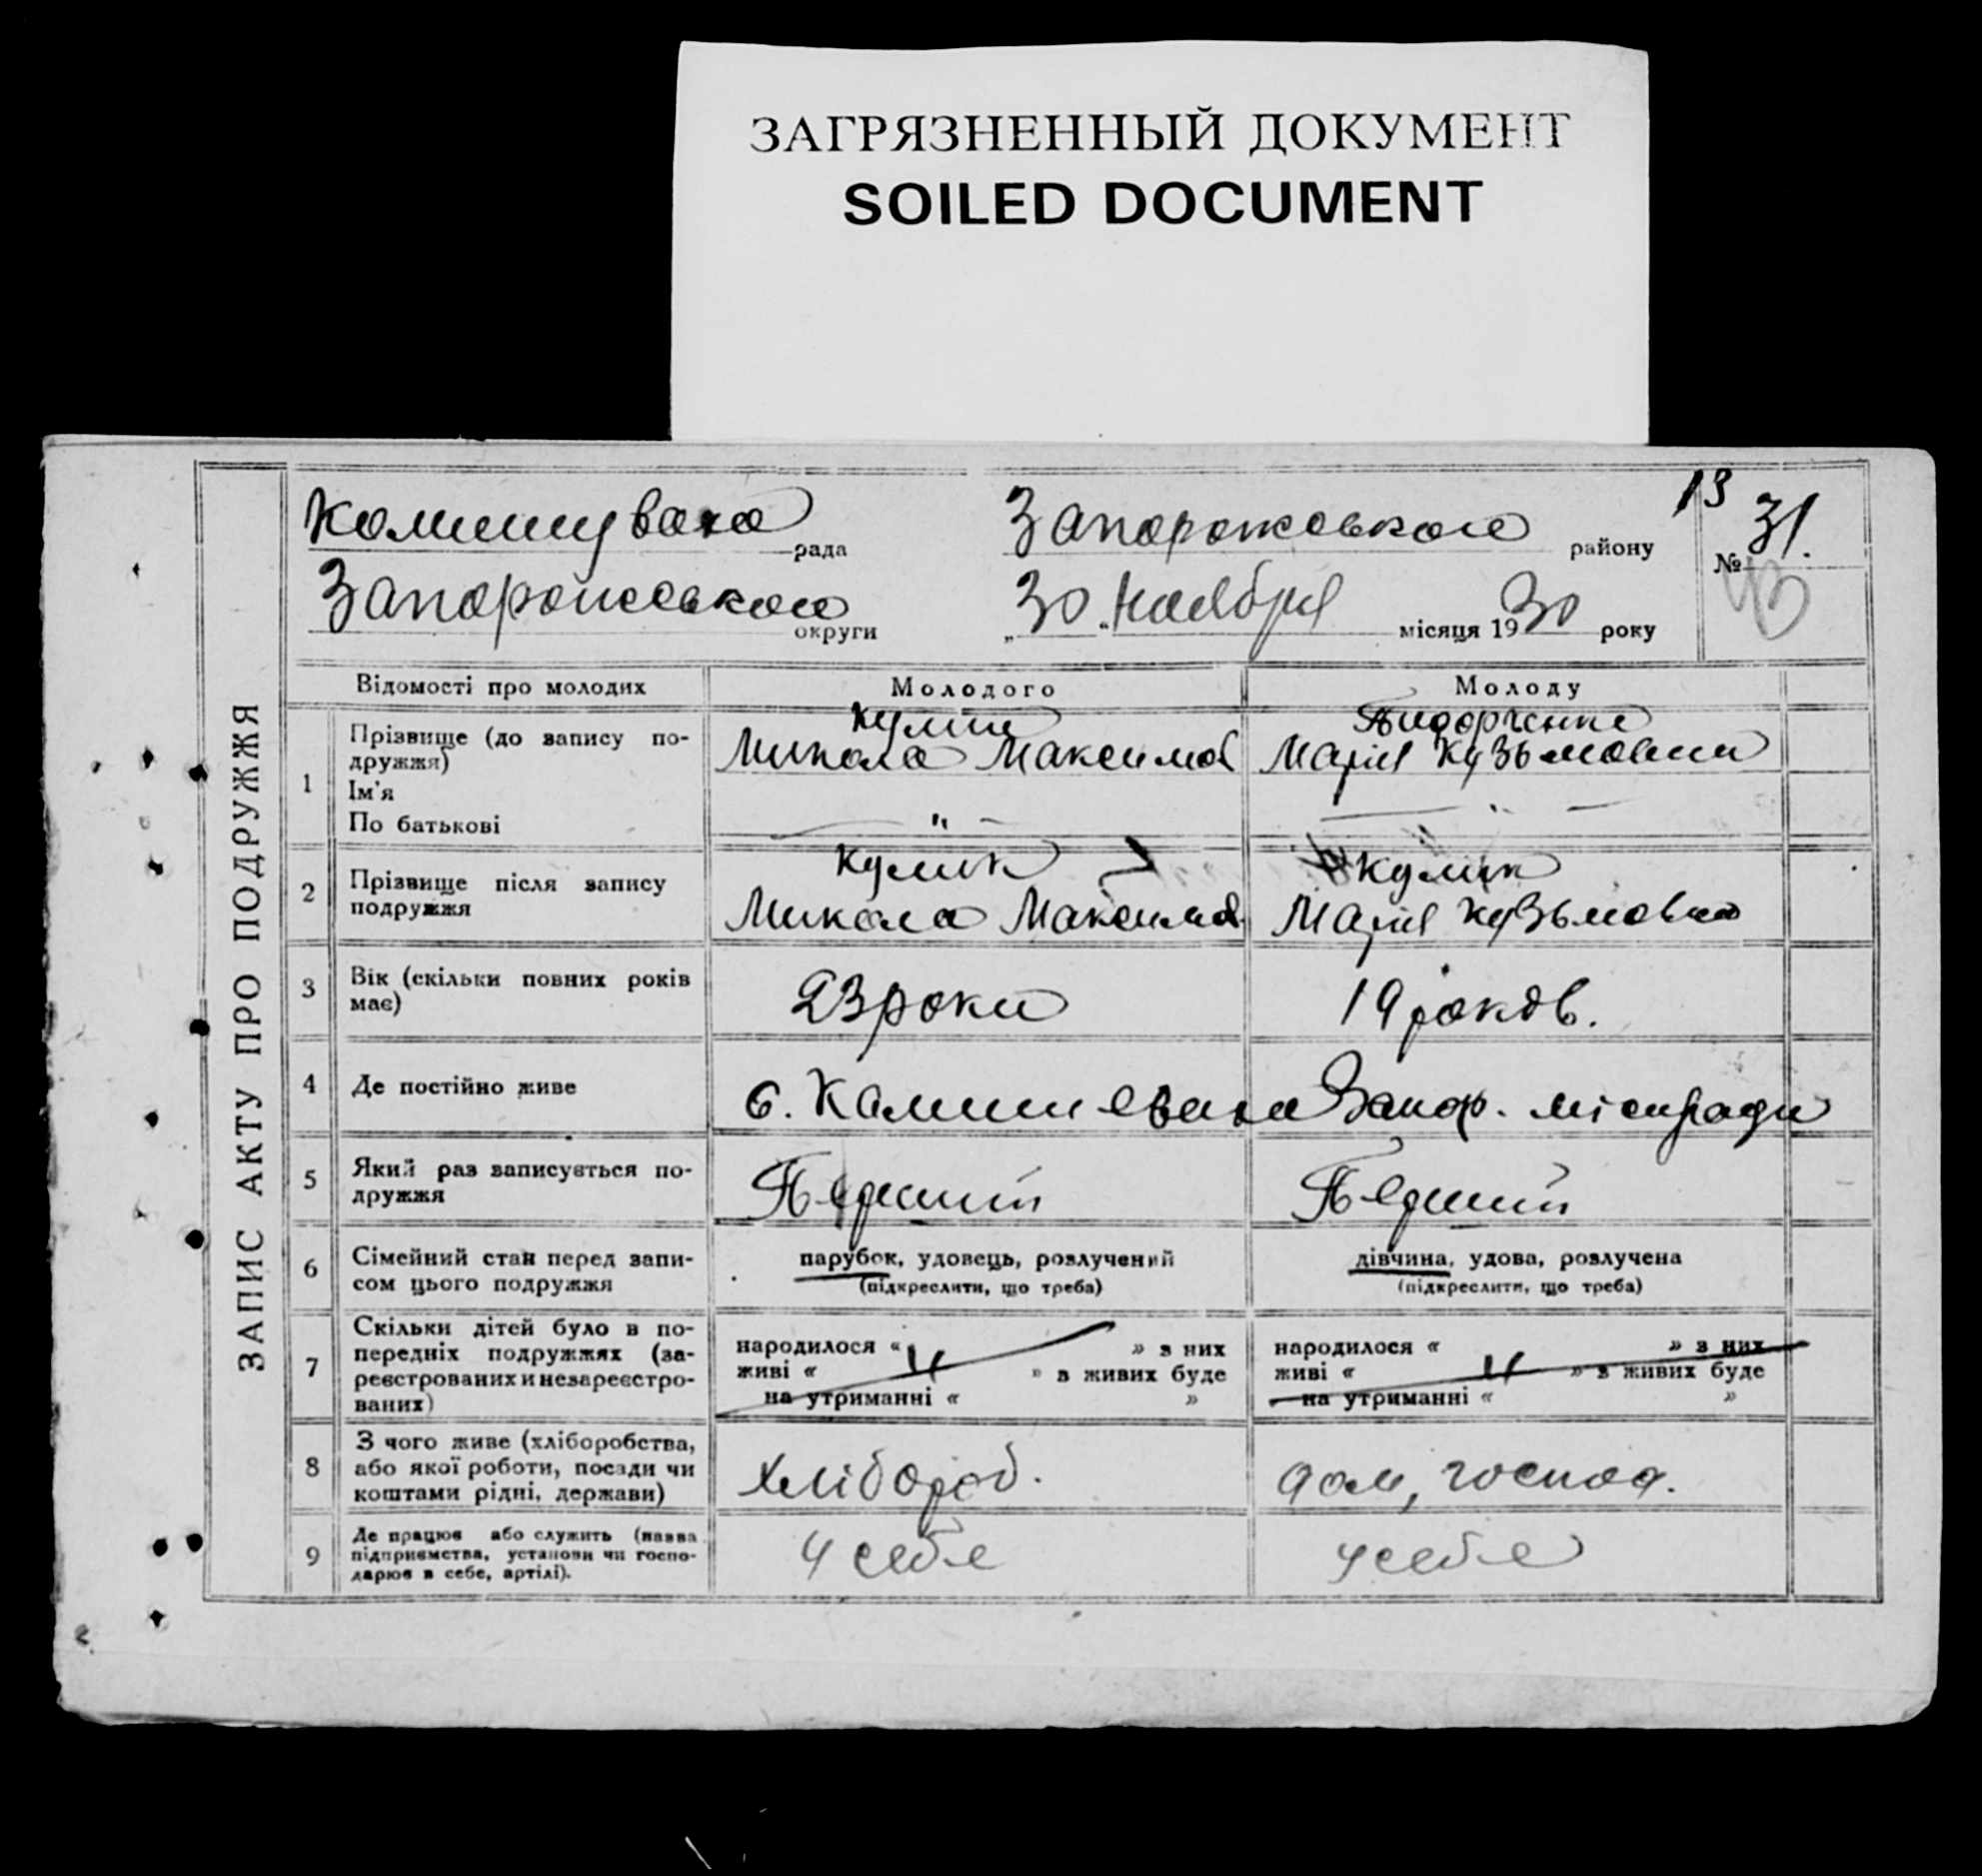 ЗАГРЯЗНЕННЫЙ ДОКУМЕНТ
SOILED DOCUMENT
ЗАПИС АКТУ ПРО ПОДРУЖЖЯ
рада
району
13
№ 31.
округи
„30„ Ноября місяця 1930 року
Відомості про молодих
Молодого
Молоду
1
Прізвище (до запису по-
дружжя)
Ім'я
По батькові
Микола Максимов
Марія
2
Прізвище після запису
подружжя
Кулик
Микола Максимов
Кулик
Марія Кузьмовна
3
Вік (скільки повних років
має)
23 роки
19 роков.
4
Де постійно живе
с. Запор. міськради
5
Який раз записується по-
дружжя
Перший
Перший
6
Сімейний стан перед запи-
сом цього подружжя
парубок, удовець, розлучений
(підкреслити, що треба)
дівчина, удова, розлучена
(підкреслити, що треба)
7
Скільки дітей було в по-
передніх подружжях (за-
реєстрованих и незареєстро-
ваних)
народилося « » з них
живі « » з живих буде
на утриманні « »
народилося « » з них
живі « » з живих буде
на утриманні « »
8
З чого живе (хліборобства,
або якої роботи, посади чи
коштами рідні, держави)
хлібороб.
дом, господ.
9
Де працює або служить (назва
підприємства, установи чи госпо-
дарює в себе, артілі).
у себе
у себе